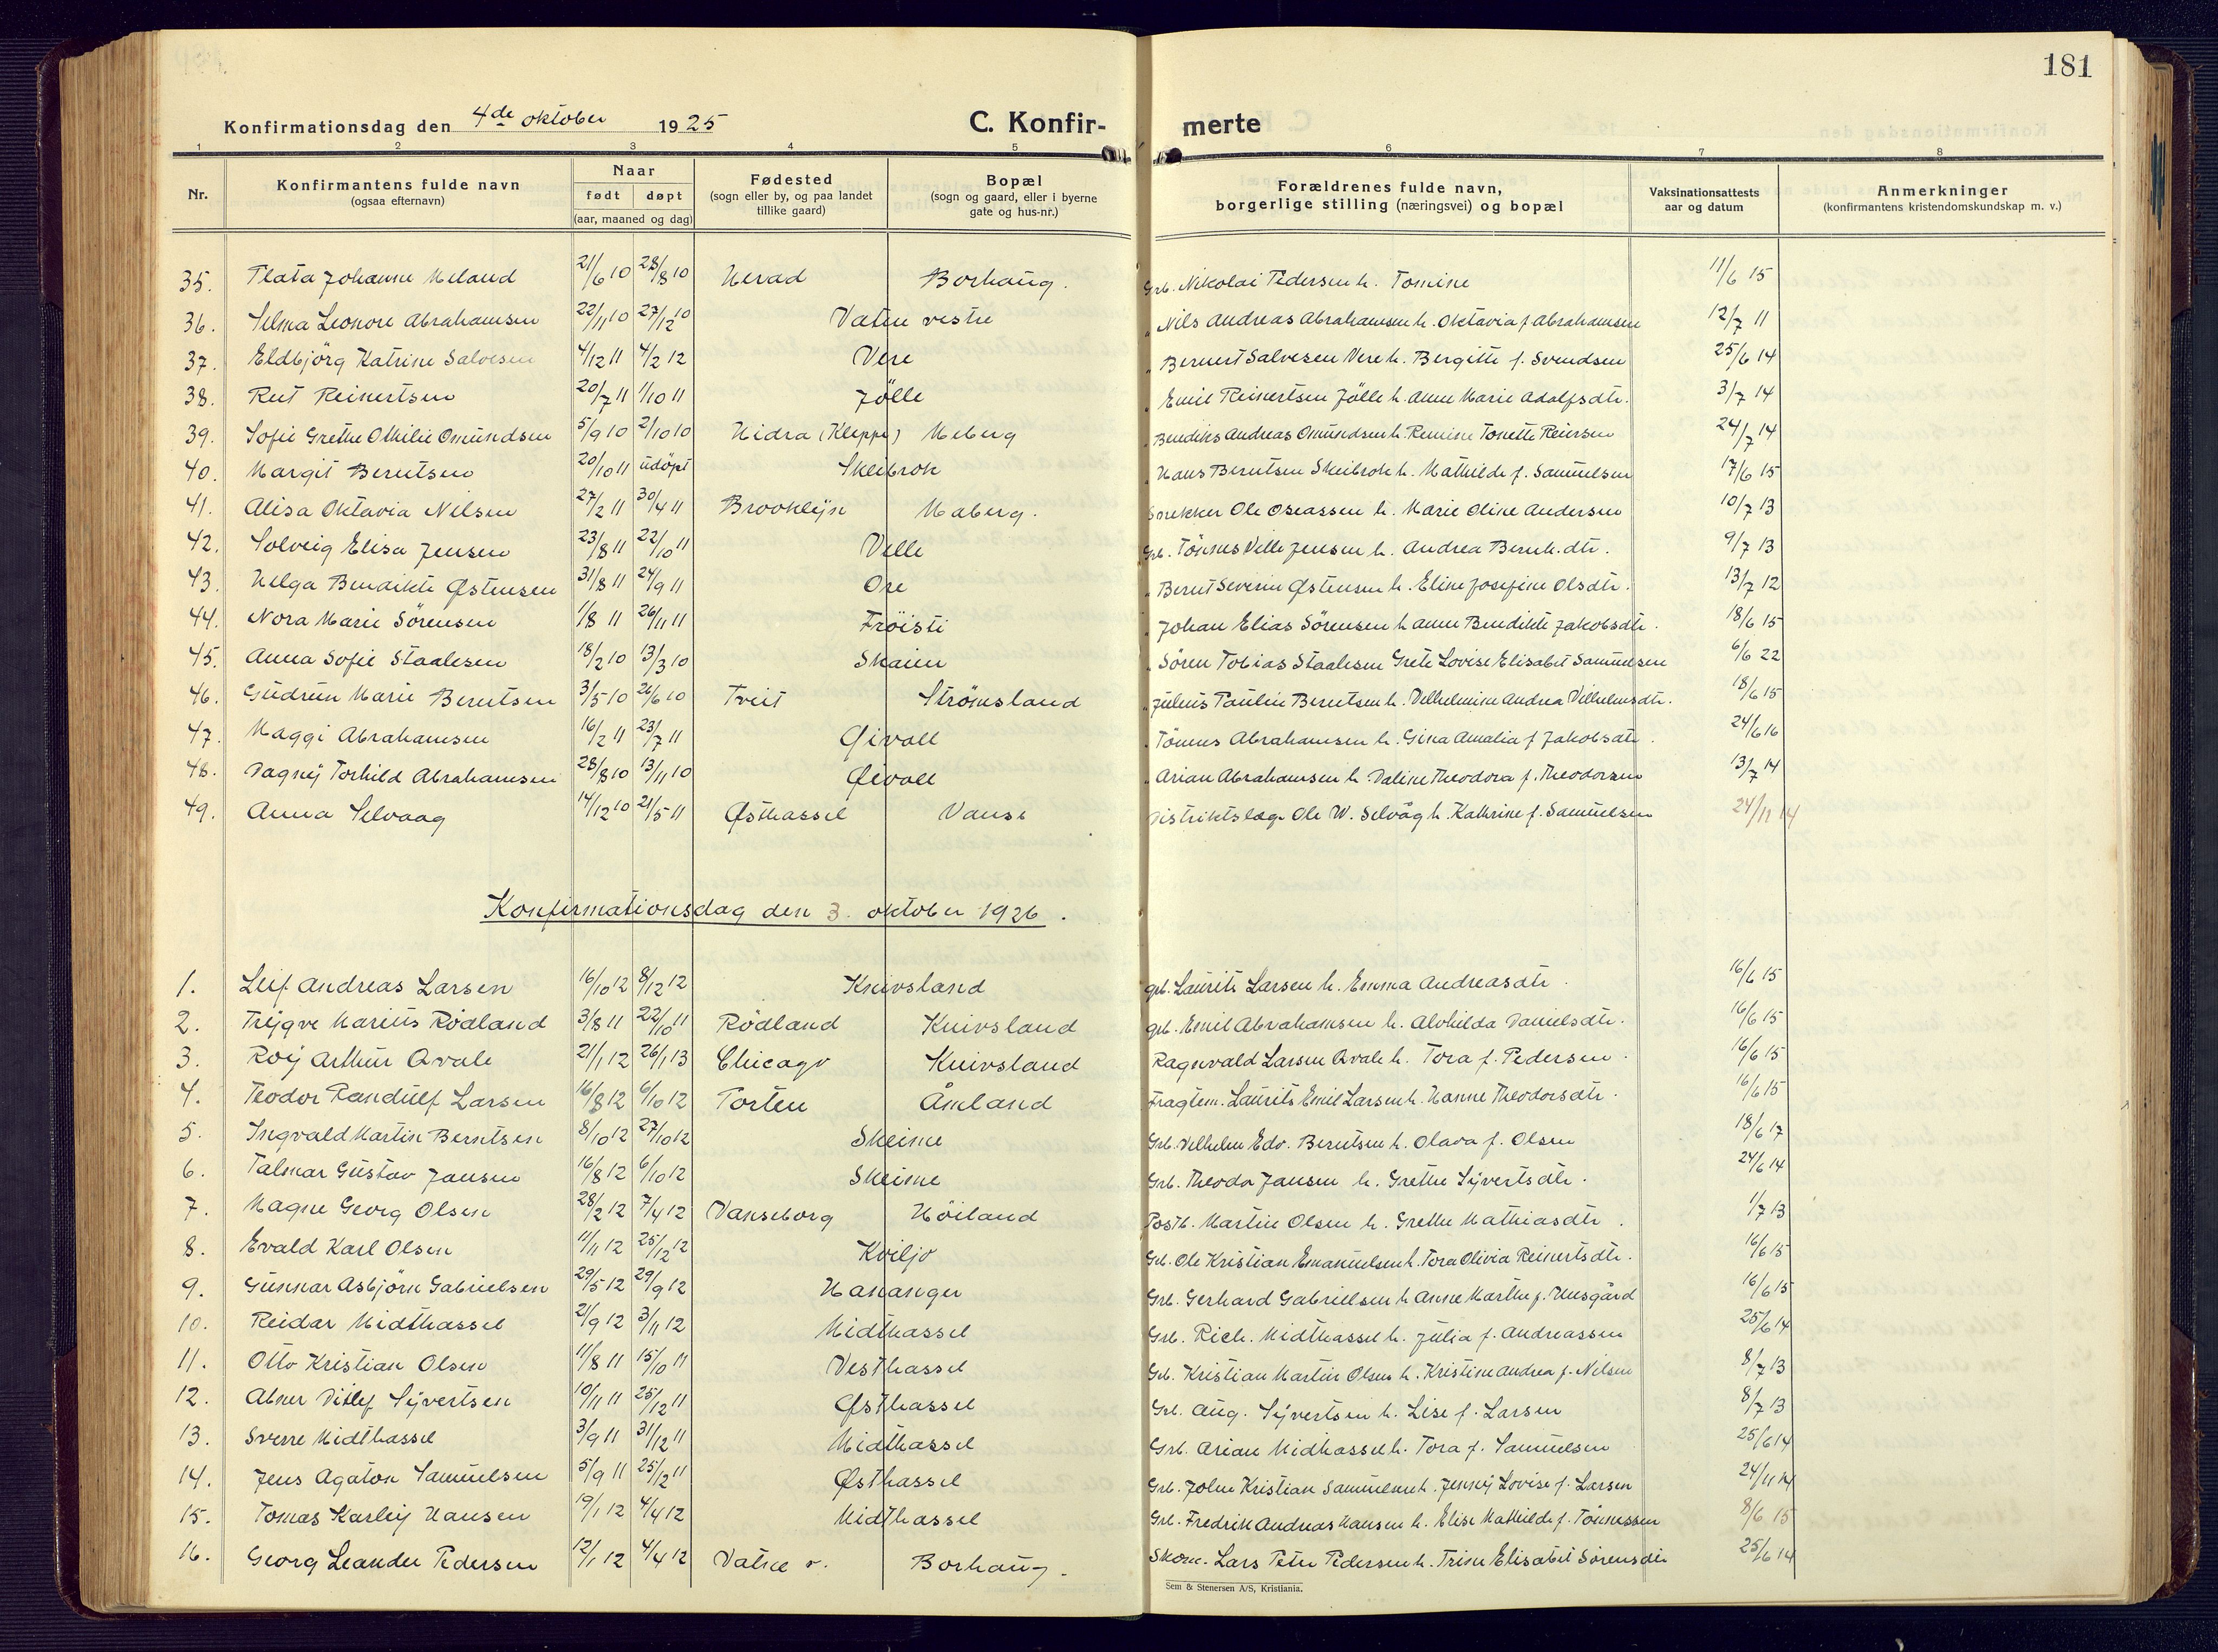 181
Konfirmationsdag den 4de oktober 1925 C. Konfir- merte
1 2 3 4 5 6 7 8
Nr. Konfirmantens fulde navn (ogsaa efternavn) Naar født døpt (aar, maaned og dag) Fødested (sogn eller by, og paa landet tillike gaard) Bopæl (sogn og gaard, eller i byerne gate og hus-nr.) Forældrenes fulde navn, borgerlige stilling (næringsvei) og bopæl Vaksinationsattests aar og datum Anmerkninger (konfirmantens kristendomskundskap m. v.)
35. Johanne Meland 21/6 10 28/8 10 Herad Borhaug. Grb. Nikolai Pedersen h. Tomine 11/6 15
36. Selma Leonore Abrahamsen 22/11 10 27/12 10 Vatne vestre " Nils Andreas Abrahamsen h. Oktavia f Abrahamsen 12/7 11
37. Eldbjörg Katrine Salvesen 4/12 11 4/2 12 Vere " Berent Salvesen Vere h. Bergitte f. Svendsen 25/6 14
38. Rut Reinertsen 20/7 11 1/10 11 Jölle " Emil Reinertsen Jölle h. Anne Marie Adolfsdtr. 3/7 14
39. Sofie Grethe Othilie Omundsen 5/9 10 2/10 10 Hidra (Kleppe) Meberg " Bendiks Andreas Omundsen h. Remine Tonette Reiersen 24/7 14
40. Margit Berntsen 20/10 11 udöpt Skeibrok " Hans Berntsen Skeibrok h. Mathilde f. Samuelsen 17/6 15
41. Alisa Oktavia Nilsen 27/2 11 30/4 11 Brooklyn Maberg. Snekker Ole Oseassen h. Marie Oline Andersen 10/7 13
42. Solveig Elisa Jensen 23/8 11 22/10 11 Velle Grb. Tönnes Velle Jensen h. Andrea Bernh.dtr. 9/7 13
43. Helga Bendikte Østensen 31/8 11 24/9 11 Ore " Bernt Severin Østensen h. Eline Josefine Olsdtr. 13/7 12
44. Nora Marie Sörensen 1/8 11 26/11 11 Fröisti " Johan Elias Sörensen h Anne Bendikte Jakobsdtr. 18/6 15
45. Anna Sofie Staalesen 18/2 10 13/3 10 Skaien " Sören Tobias Staalesen Grete Lovise Elisabet Samuelsen 6/6 22
46. Gudrun Marie Berntsen 3/5 10 26/6 10 Tveit Strömsland " Julius Paulin Berntsen h. Vilhelmine Andrea Vilhelmsdtr. 18/6 15
47. Maggi Abrahamsen 16/2 11 23/7 11 Øivoll " Tönnes Abrahamsen h. Gina Amalia f Jakobsdtr. 24/6 16
48. Dagny Torhild Abrahamsen 28/8 10 13/11 10 Øivoll " Arian Abrahamsen h. Valine Theodora f. Theodorsen 13/7 14
49. Anna Selvaag 14/12 10 21/5 11 Østhassel Vanse Distriktslæge Ole W. Selvåg h. Kathrine f. Samuelsen 24/11 14
Konfirmationsdag den 3. oktober 1926.
1. Leif Andreas Larsen 16/10 12 8/12 12 Knivsland grb. Laurits Larsen h. Emma Andreasdtr. 16/6 15
2. Trygve Marius Rödland 3/8 11 22/10 11 Rödland Knivsland grb. Emil Abrahamsen h. Alvhilda Danielsdtr. 16/6 15
3. Roy Arthur Avale 21/1 12 26/1 13 Chicago Knivsland Ragnvald Larsen Avale h. Tora f. Pedersen. 16/6 15
4. Teodor Randulf Larsen 16/8 12 6/10 12 Torten Åmland Fragtem. Laurits Emil Larsen h. Hanne Theodorsdtr. 16/6 15
5. Ingvald Martin Berntsen 8/10 12 27/10 12 Skeime Grb. Vilhelm Edv. Berntsen h. Olava f. Olsen 18/6 17
6. Talmar Gustav Jansen 16/8 12 6/10 12 Skeime Grb. Theodor Jansen h. Grethe Syvertsdtr. 24/6 14
7. Magne Georg Olsen 28/2 12 7/4 12 Vanseborg Höiland Postb. Martin Olsen h. Grethe Mathiasdtr. 1/7 13
8. Evald Karl Olsen 11/11 12 25/12 12 Kviljo Grb. Ole Kristian Emanuelsen h. Tora Olivia Reinertsdtr. 16/6 15
9. Gunnar Asbjörn Gabrielsen 29/5 12 29/9 12 Hananger Grb. Gerhard Gabrielsen h Anne Marthe f. Huusgård 16/6 15
10. Reidar Midthassel 21/9 12 3/11 12 Midthassel Grb. Rich. Midthassel h. Julia f. Andreassen 25/6 14
11. Otto Kristian Olsen 11/8 11 15/10 11 Vesthassel Grb. Kristian Martin Olsen h. Kristine Andrea f. Nilsen 8/7 13
12. Abner Ditlef Syvertsen 10/11 11 25/12 11 Østhassel Grb. Aug. Syvertsen h. Lise f. Larsen 8/7 13
13. Sverre Midthassel 3/9 11 31/12 11 Midthassel Grb. Arian Midthassel h. Tora f. Samuelsen 25/6 14
14. Jens Agaton Samuelsen 5/9 11 25/12 11 Østhassel Grb. John Kristian Samuelsen h. Jenny Lovise f. Larsen 24/11 14
15. Tomas Karley Hansen 19/1 12 4/4 12 Midthassel Grb. Fredrik Andreas Hansen h. Elise Mathilde f. Tönnessen 8/6 15
16. Georg Leander Pedersen 12/1 12 4/4 12 Vatne v. Borhaug. Skom. Lars Peter Pedersen h. Trine Elisabet Sörensdtr 25/6 14
Sem & Stenersen A/S, Kristiania.